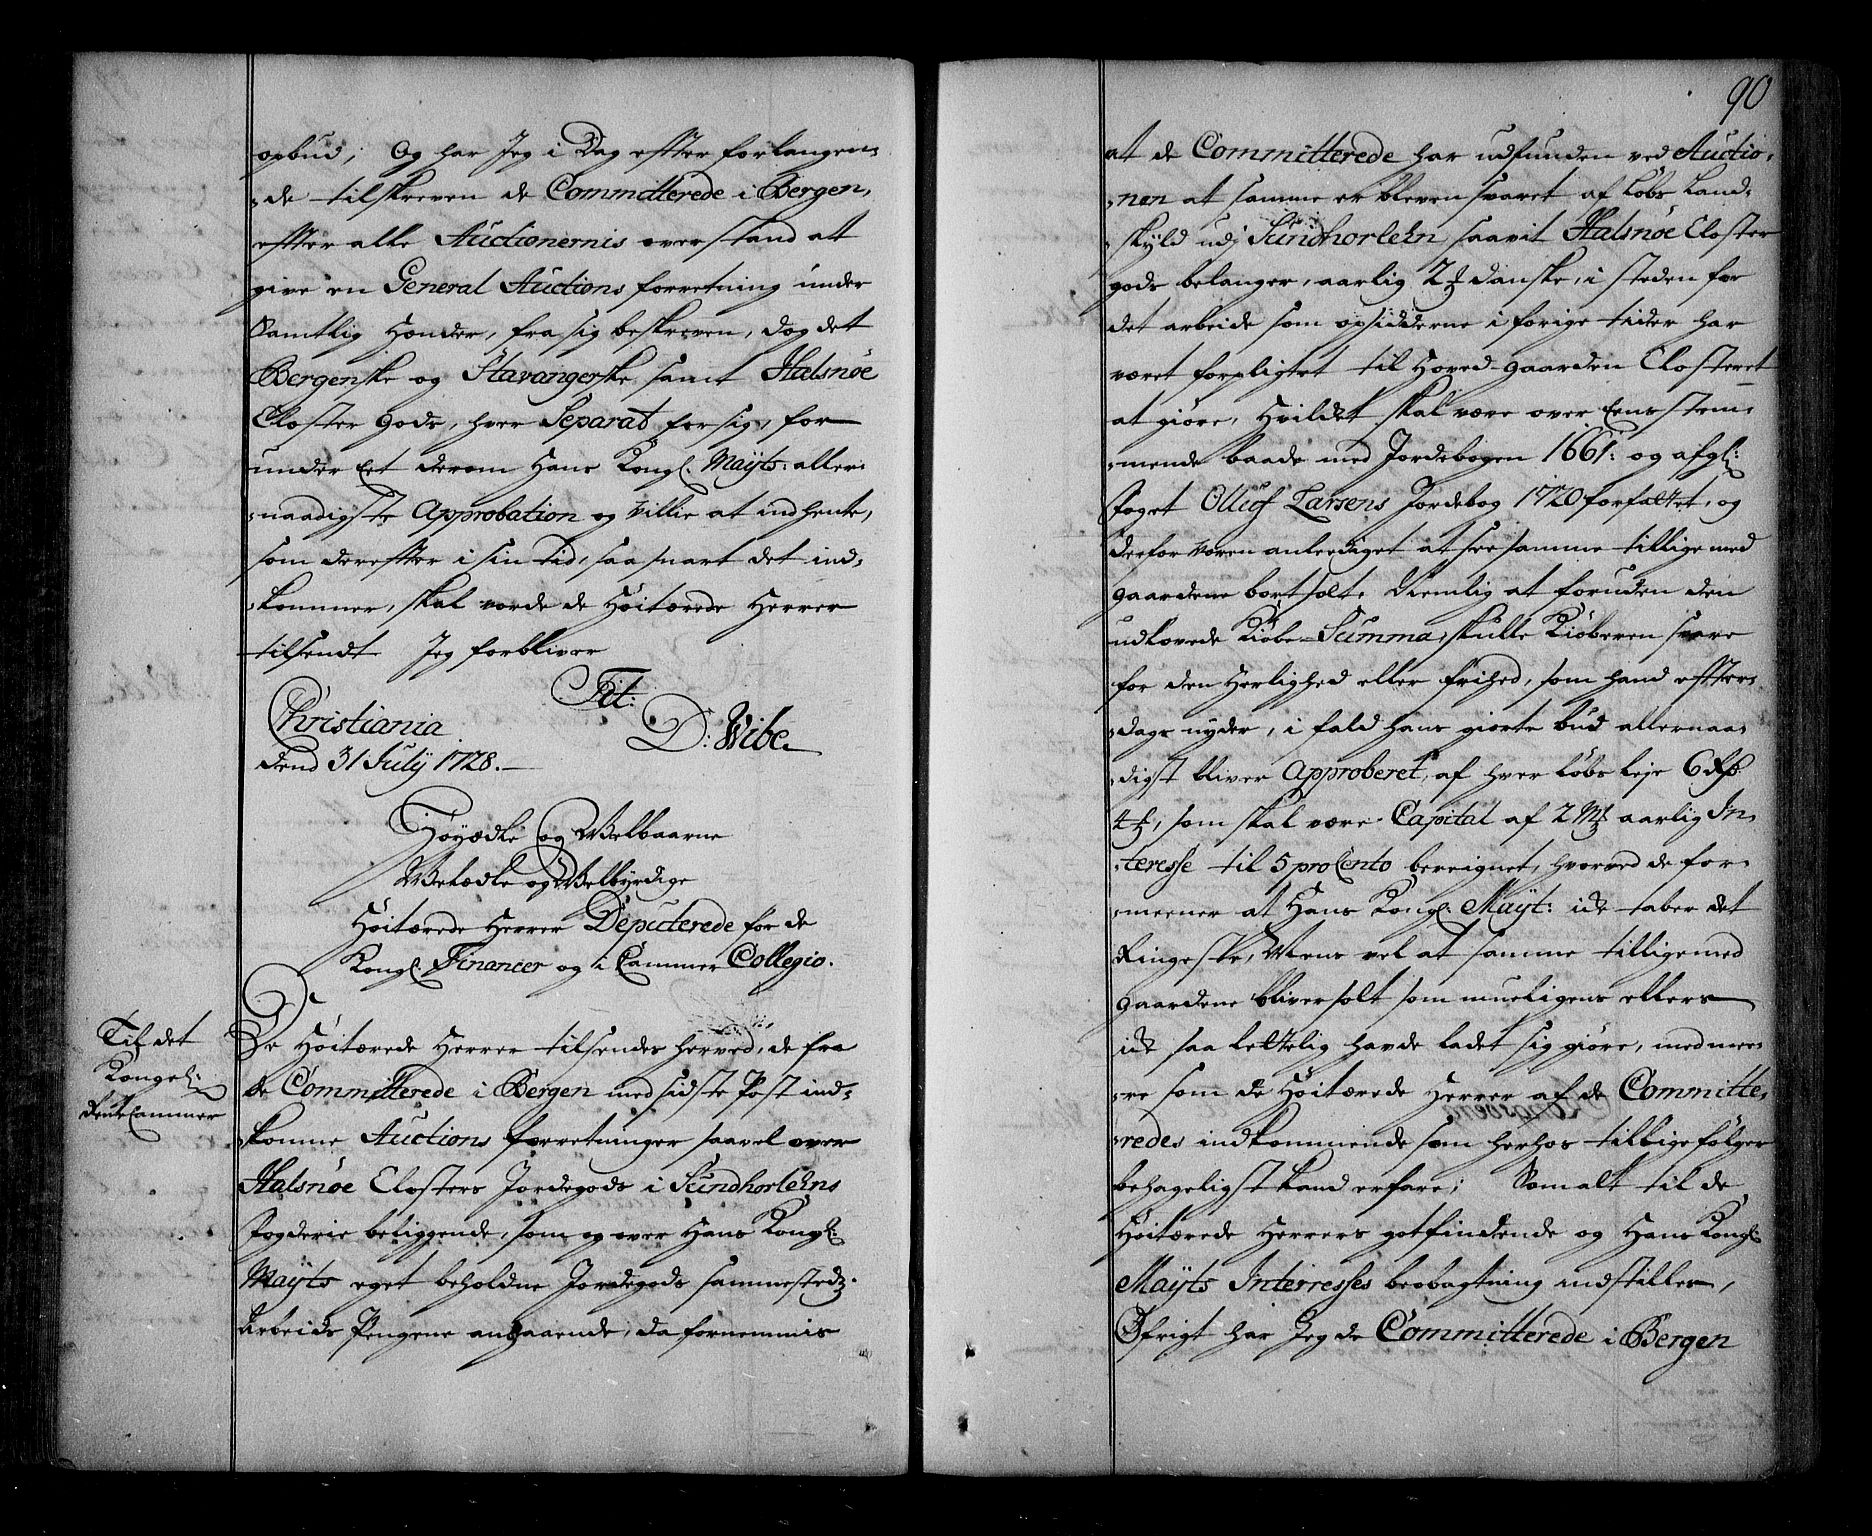 opbud; Og har Jeg i Dag effter forlangen-
-de tilskreven de Committerede i Bergen,
effter alle Auctionernis overstand att
give en General Auctions forretning under
Samtlig Hender, fra sig beskreven, dog det
Bergenske og Stavangerske samt Halsnøe
Closter Gods, hver Separat for sig, for
under Eet derom Hans Kongl. Mayts: aller-
-naadigste Approbation og Villie at indhente,
som dereffter i sin tid, saa snart det ind-
-kommer, skal vorde de Høitærede Herrer
tilsendt Jeg forbliver
Tit:
Christiania
dend 31 July 1728.
D: Wibe
Høyædle og Welbaarne
Welædle og Welbyrdige
Høitærede Herrer Deputerede for de
Kongl. Financer og i Cammer Collegio.
Til det
Kongel:
Rente Cammer
De Høitærede Herrer tilsendes herved, de fra
de Committerede i Bergen med sidste Post ind-
-komne Auctions forretninger saavel over
Halsnøe Closters Jordegods i Sundhorlehns
Fogderie beliggende, som og over Hans Kongl:
Mayts eget beholdne Jordegods sammestedz.
Arbeids Pengene angaaende, da fornemmis
90
at de Committerede har udfunden ved Auctio-
-nen at samme er bleven svaret af Løbs Land-
-skyld udj Sundhorlehn saavit Halsnøe Closter
gods belanger, aarlig 2 Danske, i steden for
det arbeide som opsidderne i forige tider har
været forpligtet til Hoved-gaarden Closteret
at giøre, Hvilket skal være over Eens stem-
-mende baade med Jordebogen 1661: og afgl:
Foget Olluf Larsens Jordebog 1720 forfattet, og
derfor væren anleediget at see samme tillige med
gaardene bortsolt. Nemlig at foruden den
udlovede Kiøbe-Summa, skulle Kiøberen svare
for den Herlighed eller frihed, som hand effter-
-dags nyder, i fald hans giorte bud allernaa-
-digst bliver Approberet, af hver Løbs leje 6 Rd
4, som skal være Capital af 2 Mk aarlig In-
-teresse til 5 pro Cento bereignet, hvorved de for-
-meener at Hans Kongl. Mayt: icke taber det
Ringeste, Mens vel at samme tilligemed
gaardene bliver solt som mueligens ellers
icke saa lettelig havde ladet sig giøre, med mee-
-re som de Høitærede Herrer af de Committe-
-redes indkommende som herhos tillige følger
behageligst kand erfare; Somalt til de
Høitærede Herrers gotfindende og Hans Kongl:
Mayts Interresses beobagtning indstilles,
Øfrigt har Jeg de Committerede i Bergen